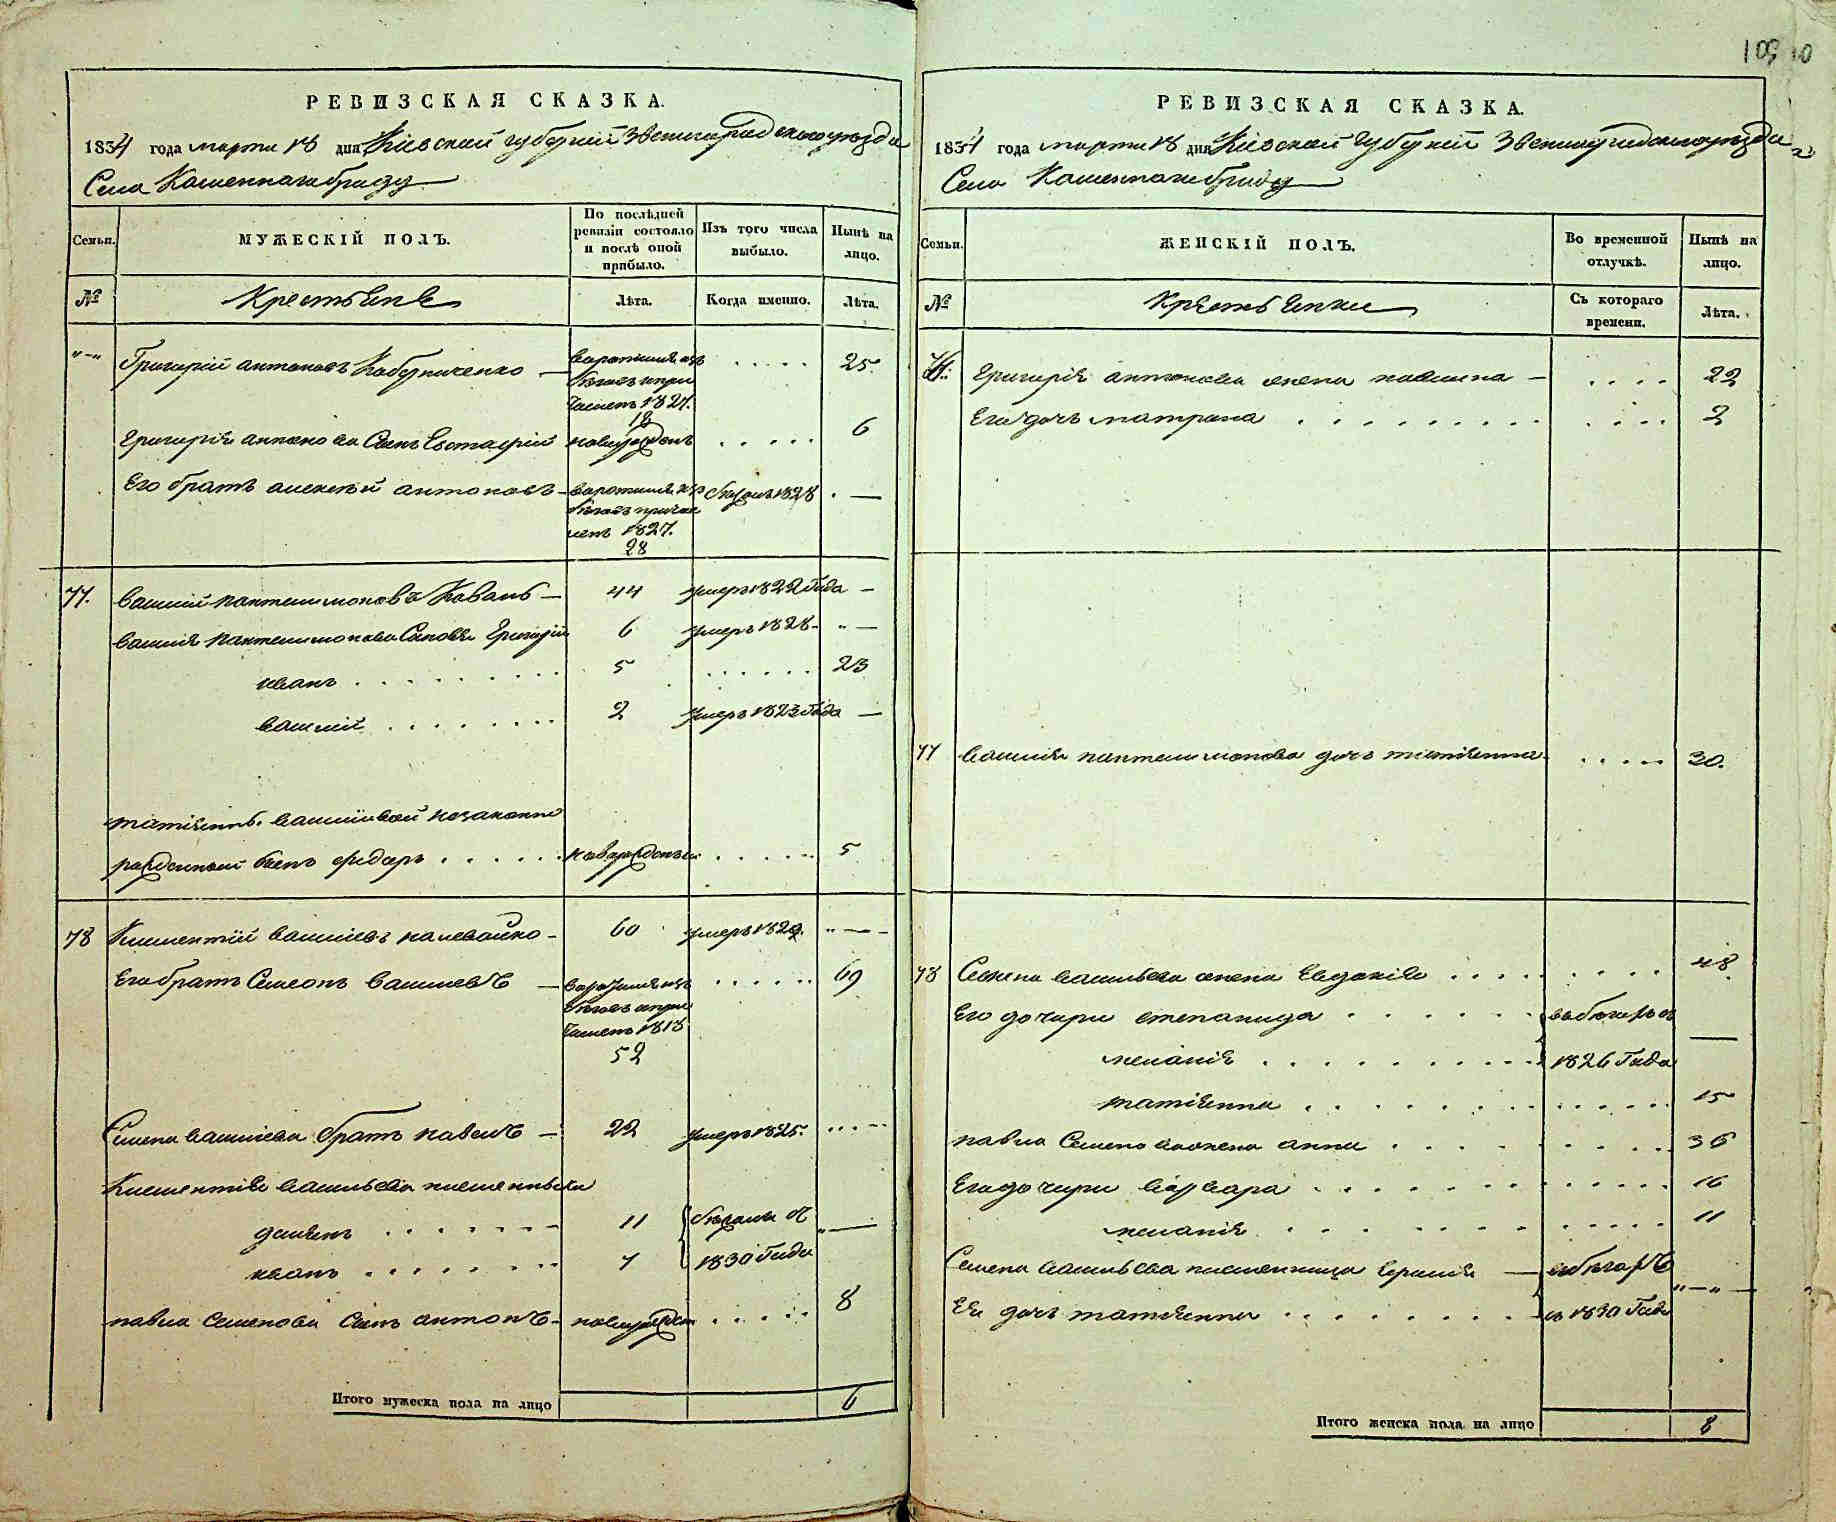 109
РЕВИЗСКАЯ СКАЗКА.
1834 года марта 18 дня Кіевской губерніи Звенигородского уезда
Села Каменнаго броду
Семьи.
МУЖЕСКІЙ ПОЛЪ.
По послѣдней ревизіи состояло и послѣ оной прибыло.
Изъ того числа выбыло.
Нынѣ на лицо.
№
Крестьяне
Лѣта.
Когда именно.
Лѣта.
Григорій антоновъ 25.
1827.
18
Григорія антонова Сынъ Евстафій новорожденъ 6
Его братъ алексѣй антоновъ 1828 —
1827.
28
77. василій пантелимоновъ Кавань — 44 умеръ 1822 Года —
василія пантелимонова Сыновя Григорій 6 умеръ 1828 —
иванъ 5 23
василій 2 умеръ 1823 Года —
татіянны василіевой незаконно
рожденный Сынъ федоръ новорожденъ 5
78 Климентій василіевъ налевайко — 60 умеръ 1829. —
Его братъ Семеонъ василіевъ — 69
1818
52
Семена василіева братъ павелъ — 22 умеръ 1825.
Климентія васильева племенники
демянъ 11 бежалы въ —
иванъ 7 1830 Года
павла семенова Сынъ антонъ новорожден 8
Итого мужеска пола на лицо 6
РЕВИЗСКАЯ СКАЗКА.
1834 года марта 18 дня Кіевской губерніи Звенигородского уезда
Села Каменнаго броду
Семьи.
ЖЕНСКІЙ ПОЛЪ.
Во временной отлучкѣ.
Нынѣ на лицо.
№
Крестьянки
Съ котораго времени.
Лѣта.
76. Григорія антонова жена павлина — 22
Его дочъ матрона 2
77 василія пантелимонова дочъ татіянна 30.
78 Семена васильева жена Евдокія 48
Его дочери степанида
меланія 1826 Года —
татіянна 15
павла Семенова жена анна 36
Его дочери варвара 16
меланія 11
Семена васильева племенница —
Ея дочъ татіянна в 1830 Года
Итого женска пола на лицо 8